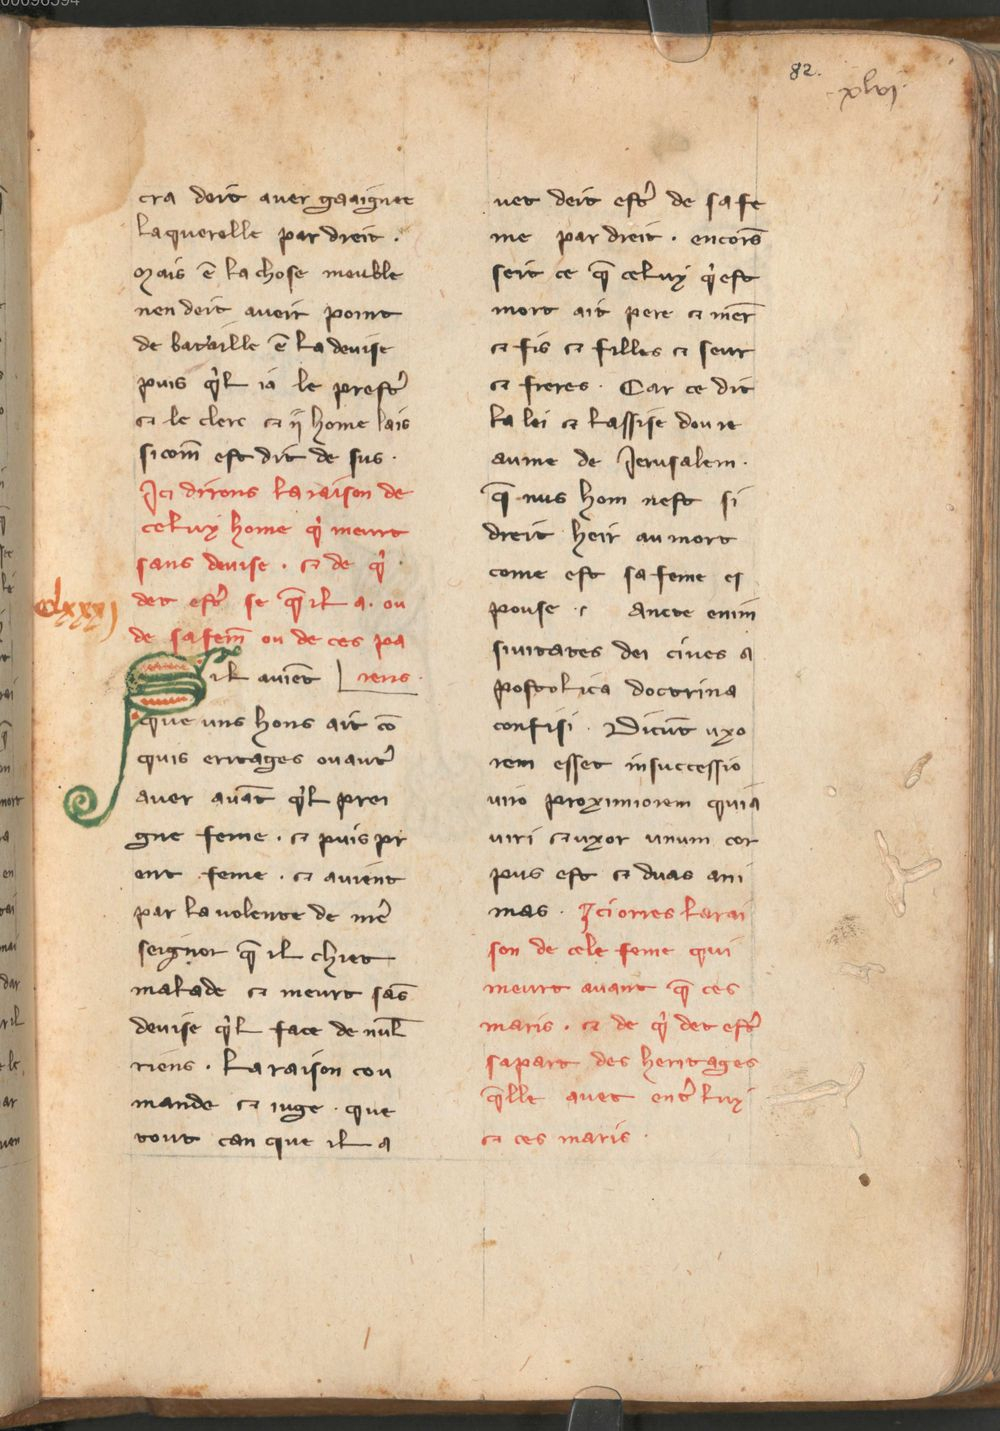 82.
xlvj
cra doit auer gaaignee
la querelle par dreit .
Mais ē la chose meuble
nen doit aueir point
de bataille ē la deuise
puis q̉l ia le prestr̉
⁊ le clerc ⁊ ij home lais
si com̄ est dit de sus .
Ici dirons la raison de
celuy home q̉ meurt
sans deuise . ⁊ de q̉
det estr̉ se q̄ il a . ou
de sa fem̄ ou de ces pa
rens .
cclxxxj
Sil auiēt
que uns hons ait cō
quis eritages ou autr̉
auer auāt q̉l prei
gne feme . ⁊ puis pr
ent feme . ⁊ auient
par la volente de nr̄e
seignor q̄ il chiet
malade ⁊ meurt sās
deuise q̉l face de nul
riens . La raison cou
mande ⁊ iuge que
tout can que il a
uet deit estr̉ de sa fe
me par dreit . encors̄
seit ce q̄ celuy q̉ est
mort ait pere ⁊ mer̄
⁊ fis ⁊ filles ⁊ seur
⁊ freres . Car ce dit
la lei ⁊ lassise dou re
aume de Jerusalem .
q̄ nus hom nest si
dreit heir au mort
come est sa feme es
pouse . Ancte enim
siuitates dei ciues a
postolica doctrina
confisi . Dicūt uxo
rem esset in successio
uiro proximiorem quia
viri ⁊ uxor unum cor
pus est ⁊ duas ani
mas . Ici orres la rai
son de cele feme qui
meurt auant q̄ ces
maris . ⁊ de q̉ det estr̉
sa part des heritages
q̄lle auet entr̉ luy
⁊ ces maris .